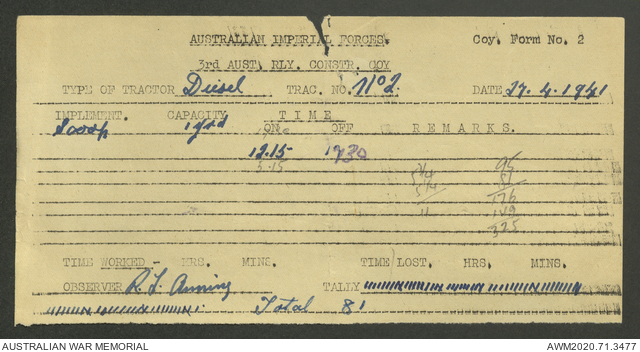 AUSTRALIAN IMPERIAL FORCES. Coy. Form No. 2
3rd AUST. RLY. CONSTR. COY
TYPE OF TRACTOR Diesel TRAC. NO. Nº2. DATE 27.4.1941
IMPLEMENT. CAPACITY T I M E
Scoop 1 yrd ON OFF R E M A R K S.
12.15 1930
5.15
95
5¼ 81
5¾ 176
11 149
325
TIME WORKED - HRS. MINS. TIME LOST. HRS. MINS.
OBSERVER R. L. Anning TALLY
Total 81
AUSTRALIAN WAR MEMORIAL AWM2020.71.3477